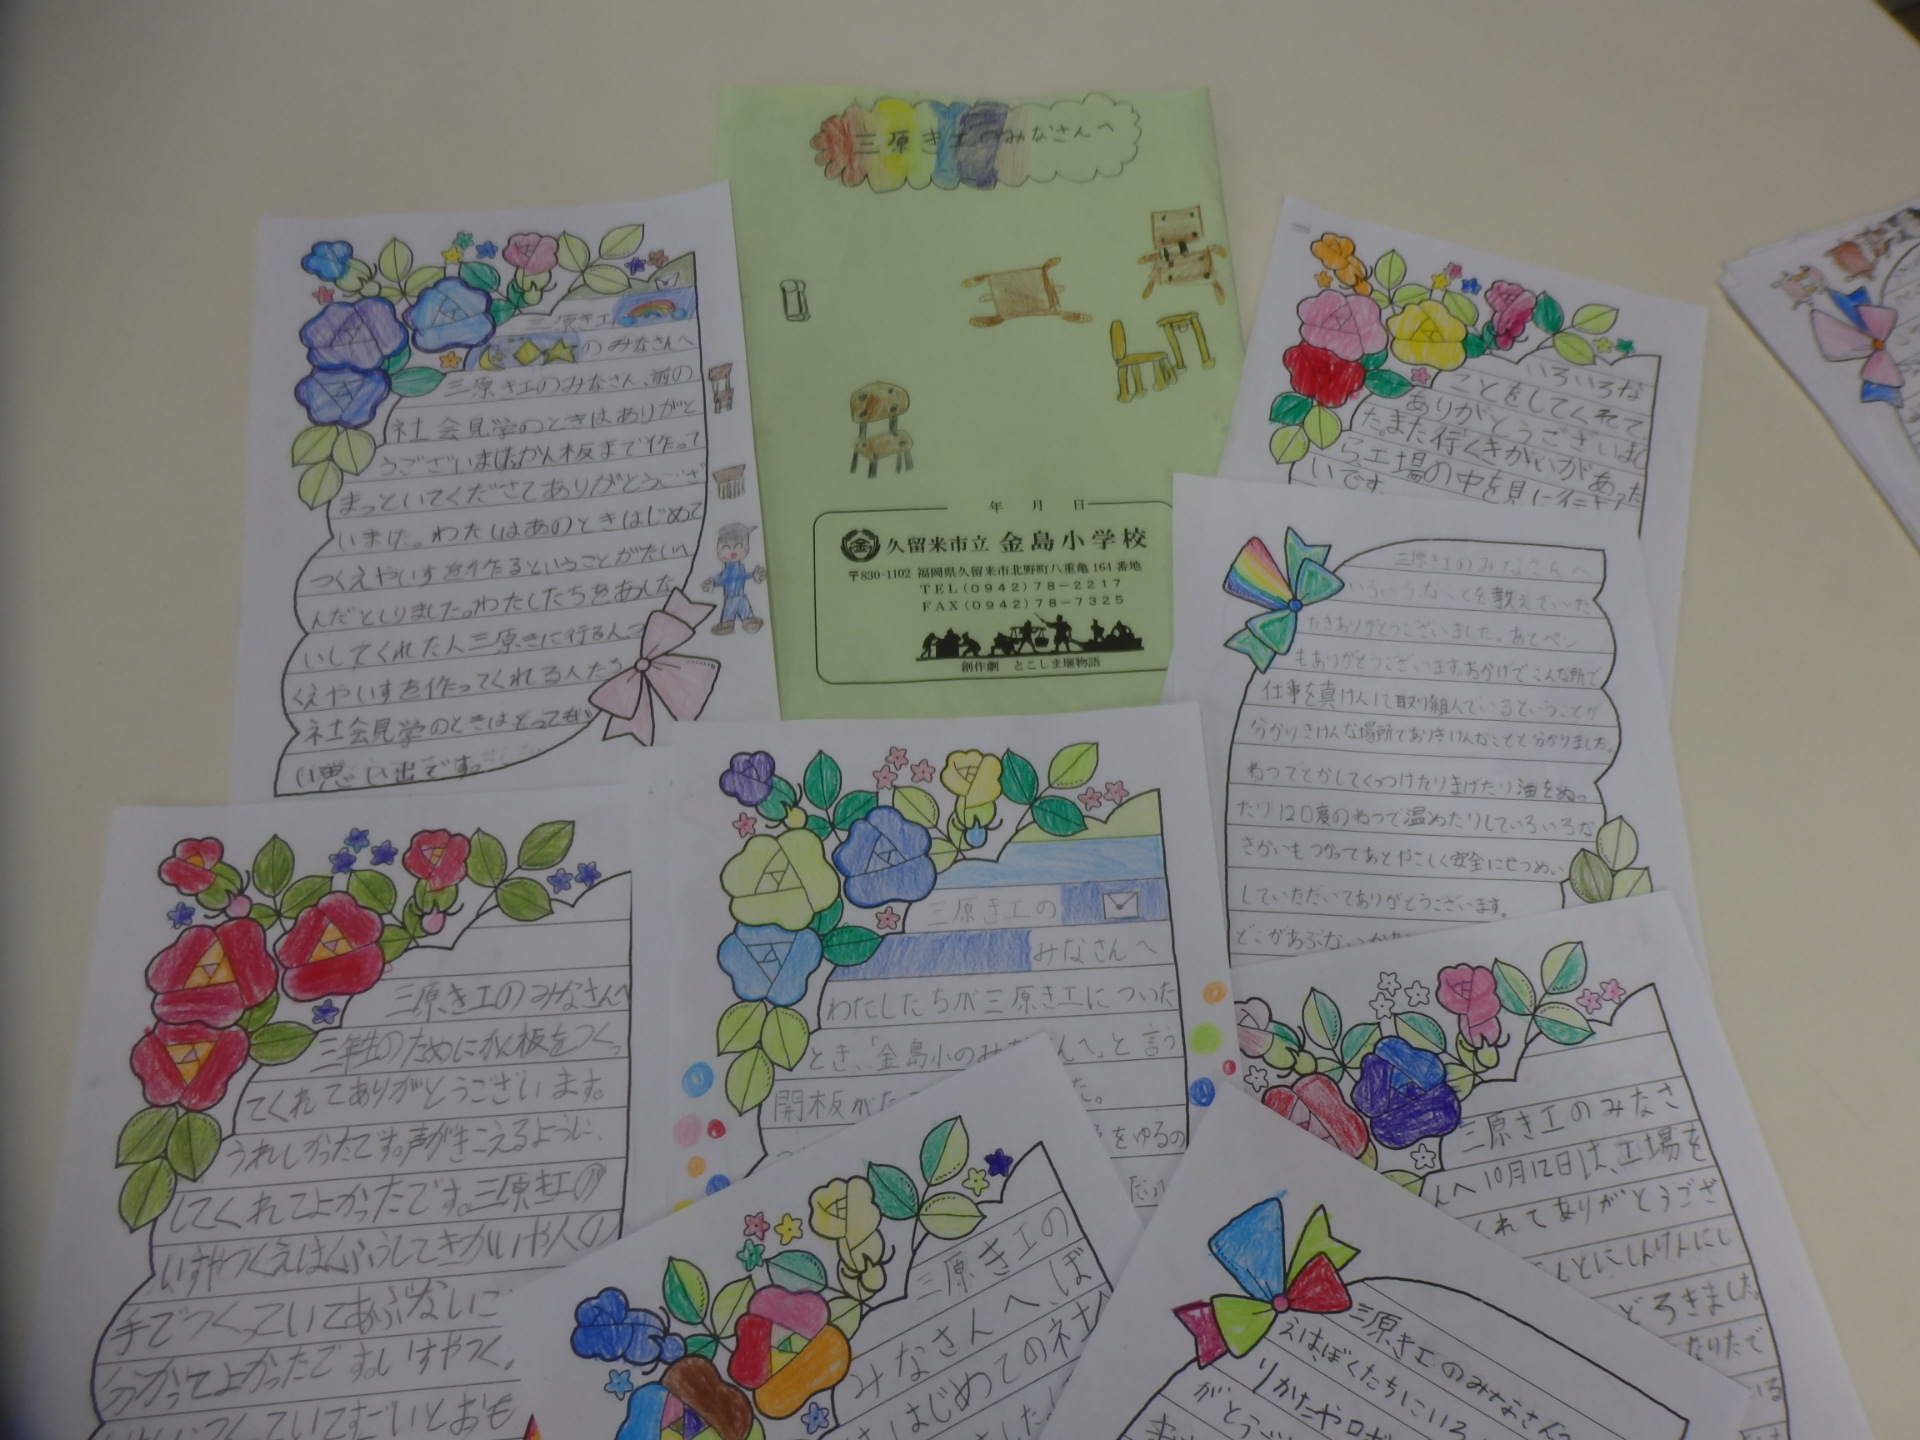 三原き工のみなさんへ
年 月 日
久留米市立 金島小学校
〒830-1102 福岡県久留米市北野町八重亀164番地
TEL(0942)78-2217
FAX(0942)78-7325
創作劇 とこしま堰物語
三原き工
のみなさんへ
三原き工のみなさん、前の
社会見学のときはありがと
うございました。かん板まで作って
まっといてくださてありがとうござ
いました。わたしはあのときはじめて
つくえやいすを作るということがたいへ
んだとしりました。わたしたちをあんな
いしてくれた人三原きに行る人、つ
くえやいすを作ってくれる人たち
社会見学のときはとってもい
い思い出です。
いろいろな
ことをしてくれて、
ありがとうございまし
た。また行くきかいがあった
ら工場の中を見に行き
いです。
三原き工のみなさんへ
いろいろなことを教えていた
だきありがとうございました。あとペン
もありがとうございます。おかげでこんな所で
仕事を真けんに取り組んでいるということが
分かりきけんな場所でありきけんなことと分かりました。
ねつでとかしてくっつけたりまげたり油をぬっ
たり120度のねつで温めたりしていろいろな
きかいもつかってあとやさしく安全にせつめい
していただいてありがとうございます。
どこがあぶないか
三原き工のみなさんへ
三年生のためにかん板をつくっ
てくれてありがとうございます。
うれしかったです。声がきこえるように、
してくれてよかったです。三原き工の
いすやつくえはくふうしてきかいや人の
手でつくっていてあぶないこ
分かってよかったです。いすやつく
つくっていてすごいとおも
三原き工の
みなさんへ
わたしたちが三原き工についた
とき、「金島小のみなさんへ」と言う
開板がた
た。
をゆるの
三原き工のみなさ
んへ10月12日は、工場を
くれてありがとうござ
んとにしんけんにし
どろきました。
なりたで
三原き工の
みなさんへ、ぼ
はじめての社
ました。
三原き工のみなさんへ
えはぼくたちにいろ
りかたやロボ
がとうご